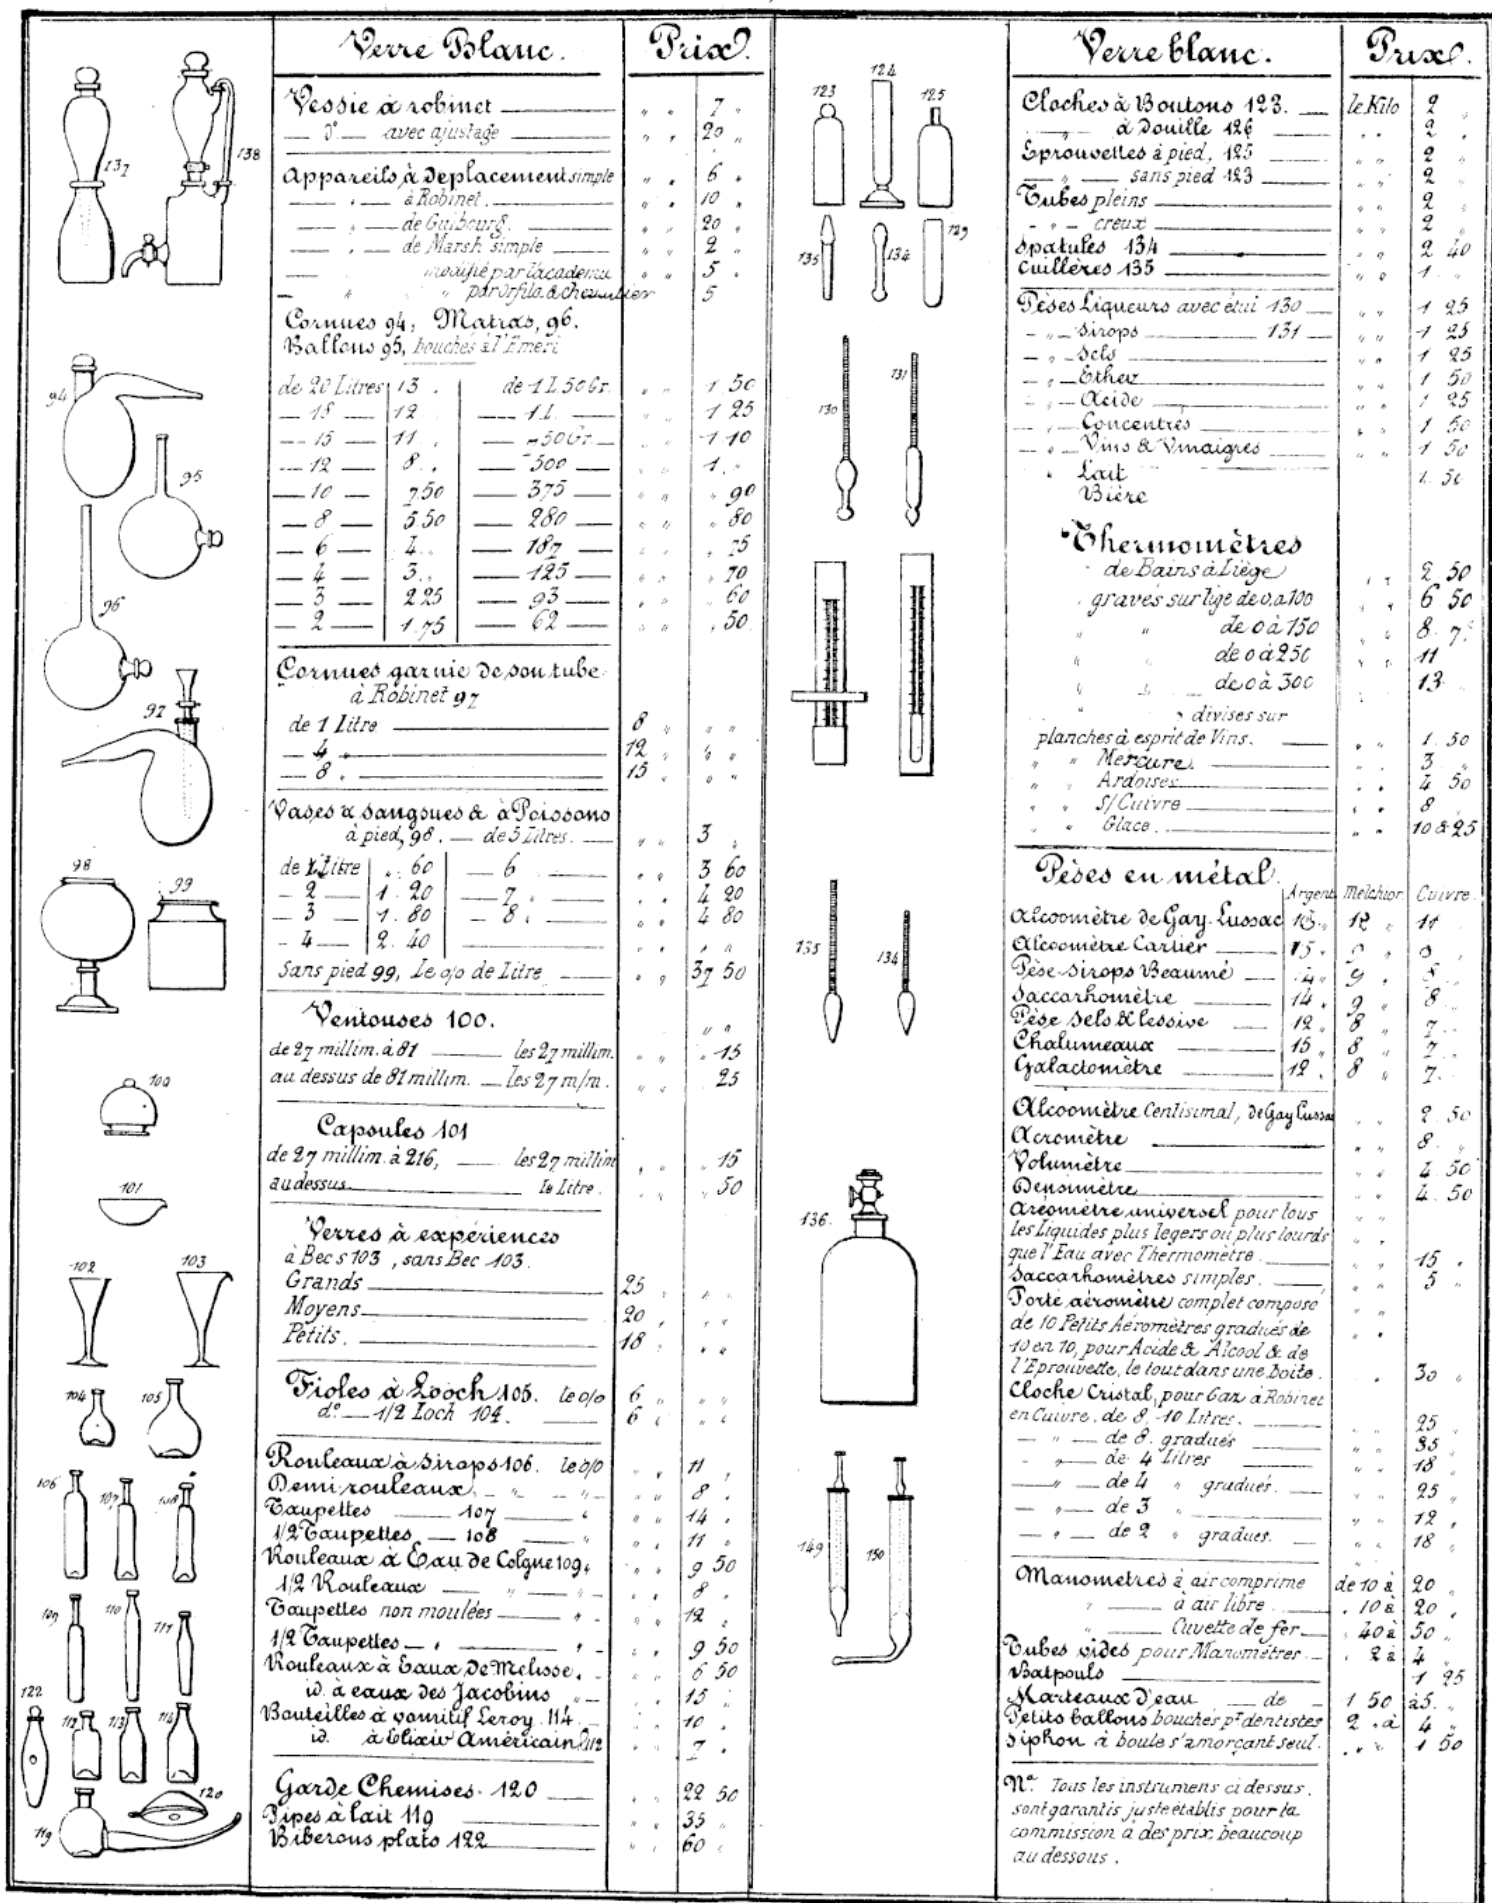 Verre Blanc. Prix.
Vessie à robinet " " 7 "
— d° — avec ajustage " " 20 "
Appareils à Deplacement simple " " 6 "
— " — à Robinet. " " 10 "
— " — de Guibourg. " " 20 "
— " — de Marsh simple " " 2 "
— " modifié par l'academie " " 5 "
— " " par Orfila & chevallier 5
Cornues 94, Matras, 96.
Ballons 95, bouchés à l'Emeri
de 20 Litres 13 . de 1 L 50 Gr. " " 1 50
— 18 — 12 . — 1 L. — " " 1 25
— 15 — 11 . — 50 Gr. — " " 1 10
— 12 — 8 . — 500 — " " 1 "
— 10 — 7.50 — 375 — " " " 90
— 8 — 5.50 — 280 — " " " 80
— 6 — 4 .. — 187 — " " " 75
— 4 — 3 .. — 125 — " " " 70
— 3 — 2 25 — 93 — " " " 60
— 2 — 1.75 — 62 — " " " 50
Cornues garnie de son tube
à Robinet 97
de 1 Litre 8 " " "
— 4 " 12 " " "
— 8 " 15 " " "
Vases à sangsues & à Poissons
à pied, 98. — de 5 Litres. — " " 3 "
de 1 Litre " 60 — 6 " " 3 60
— 2 — 1 . 20 — 7 " " 4 20
— 3 — 1 . 80 — 8 " " 4 80
— 4 — 2 . 40 " " " "
Sans pied 99, Le o/o de Litre " " 37 50
Ventouses 100.
de 27 millim. à 81 — les 27 millim. " " " 15
au dessus de 81 millim. — les 27 m/m. " " 25
Capsules 101
de 27 millim. à 216, — les 27 millim " " " 15
au dessus — le litre. " " " 50
Verres à expériences
à Bec s 103, sans Bec 103.
Grands 25 " " "
Moyens 20 " " "
Petits. 18 " " "
Fioles à Looch 105. le o/o 6 " " "
d° — 1/2 Loch 104. 6 " " "
Rouleaux à Sirops 106. le o/o " " 11 "
Demi-rouleaux — " — " " " 8 "
Taupettes — 107 — " " " 14 "
1/2 Taupettes — 108 — " " " 11 "
Rouleaux à Eau de Colgne 109 " " " 9 50
1/2 Rouleaux — " — " " " 8 "
Taupettes non moulées — " " " 12 "
1/2 Taupettes — " — " " " 9 50
Rouleaux à Eaux de Melisse " " " 6 50
id. à eaux des Jacobins " " " 15 "
Bouteilles à vomitif Leroy. 114 " " 10 "
id. à Elixir Américain 112 " " 7 "
Garde Chemises. 120 " " 22 50
Pipes à lait 119 " " 35 "
Biberons plats 122 " " 60 "
137
138
94
95
96
97
98
99
100
101
102
103
104
105
106
107
108
109
110
111
122
112
113
114
120
119
123
124
125
135
134
129
130
131
135
134
136.
149
150
Verre blanc. Prix.
Cloches à Boutons 123. le Kilo 2 "
— " à Douille 126 " " 2 "
Eprouvettes à pied, 125 " " 2 "
— " — sans pied 123 " " 2 "
Tubes pleins " " 2 "
— " — creux " " 2 "
Spatules 134 " " 2 40
Cuillères 135 " " 1 "
Pèses Liqueurs avec étui 130 " " 1 25
— " — Sirops — 131 " " 1 25
— " — Sels " " 1 25
— " — Ether " " 1 50
— " — Acide " " 1 25
— " — Concentrés " " 1 50
— " — Vins & Vinaigres " " 1 50
" Lait 1 50
Bière
Thermomètres
de Bains à Liège " " 2 50
graves sur tige de 0, à 100 " " 6 50
" " de 0 à 150 " " 8
" " de 0 à 250 " " 11
" " de 0 à 300 13
" " divises sur
planches à esprit de Vins. " " 1 50
" " Mercure. " " 3 "
" " Ardoises " " 4 50
" " S/Cuivre " " 8 "
" " Glace. " " 10 & 25
Pèses en métal.
Argent Melchior Cuivre
Alcoomètre de Gay-Lussac 12 " 11
Alcoomètre Cartier 15 "
Pèse-Sirops Beaumé 9 "
Saccarhomètre 14 " 9 " 8 "
Pèse Sels & lessive 12 " 8 " 7 "
Chalumeaux 15 " 8 " 7 "
Galactomètre 12 " 8 " 7 "
Alcoomètre Centisimal, de Gay Lussac " " 2 50
Acromètre " " 8 "
Volumètre " " 4 50
Densimètre " " 4 50
Areomètre universel pour tous " "
les Liquides plus legers ou plus lourds " "
que l'Eau avec Thermomètre " " 15 "
Saccarhomètres simples. " " 5 "
Porte aéromètre complet composé " "
de 10 Petits Aéromètres gradués de " "
10 en 10, pour Acide & Alcool & de
l'Eprouvette, le tout dans une boite. " 30 "
Cloche Cristal, pour Gaz à Robinet
en Cuivre. de 8, 10 Litres. " " 25 "
— " — de 8. gradués " " 35 "
— " — de 4 Litres " " 18 "
— " — de 4 " gradués. " " 25 "
— " — de 3 " " " 12 "
— " — de 2 " gradues. " " 18 "
Manometres à air comprime de 10 à 20 "
" — à air libre " 10 à 20 "
" — Cuvette de fer — 40 à 50 "
Tubes vides pour Manomètres — " 2 à 4 "
Batpouls 1 25
Marteaux d'eau — de — 1 50 à 5 "
Petits ballons bouchés pr dentistes 2 " à 4 "
Siphon à boule s'amorçant seul. " " 1 50
Na. Tous les instrumens ci dessus.
sont garantis juste établis pour la
commission à des prix beaucoup
au dessous.